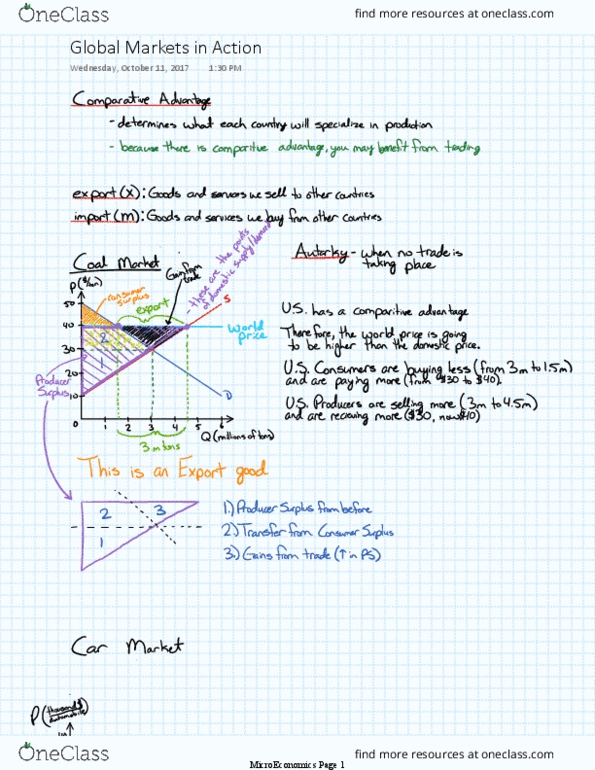 OneClass
find more resources at oneclass.com
Global Markets in Action
Wednesday, October 11, 2017 1:30 PM
Comparative Advantage
- determines what each country will specialize in production
- because there is comparitive advantage, you may benefit from trading
export (x): Goods and services we sell to other countries
import (m): Goods and services we buy from other countries
Coal Market
Autarky - when no trade is
taking place
P($/ton)
consumer
surplus
export
Gain from
trade
- these are the points
of domestic supply/demand
S
50
40
30
20
10
2
1
World
price
D
Producer
Surplus
1 2 3 4 5 6
Q (millions of tons)
3 m tons
U.S. has a comparitive advantage
Therefore, the world price is going
to be higher than the domestic price.
U.S. Consumers are buying less (from 3m to 1.5m)
and are paying more (from $30 to $40).
U.S. Producers are selling more (3m to 4.5m)
and are recieving more ($30, now $40)
This is an Export good
2 3
1
1.) Producer Surplus from before
2.) Transfer from Consumer Surplus
3.) Gains from trade (↑ in PS)
Car Market
P(thousand $/automobile)
OneClass
find more resources at oneclass.com
MicroEconomics Page 1